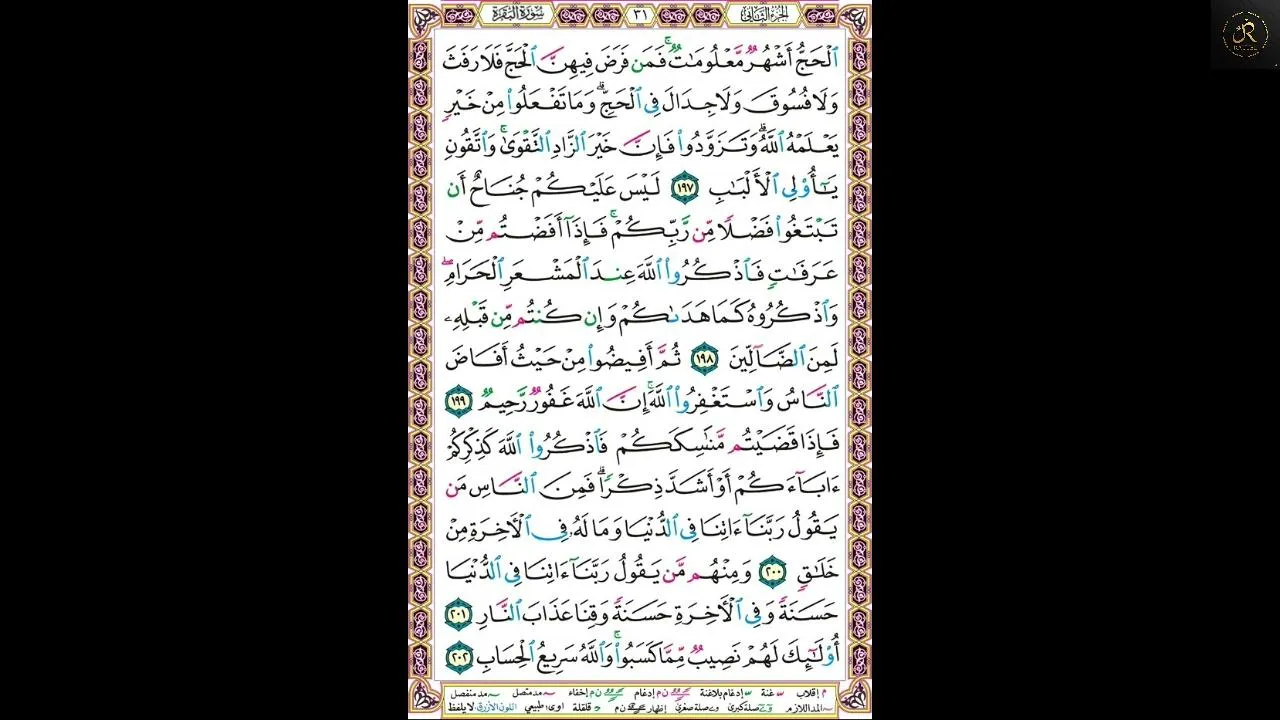 سُورَةُ البَقَرَةِ ٣١ الجزء الثاني
ٱلْحَجُّ أَشْهُرٌ مَّعْلُومَٰتٌ ۚ فَمَن فَرَضَ فِيهِنَّ ٱلْحَجَّ فَلَا رَفَثَ
وَلَا فُسُوقَ وَلَا جِدَالَ فِى ٱلْحَجِّ ۗ وَمَا تَفْعَلُوا۟ مِنْ خَيْرٍ
يَعْلَمْهُ ٱللَّهُ ۗ وَتَزَوَّدُوا۟ فَإِنَّ خَيْرَ ٱلزَّادِ ٱلتَّقْوَىٰ ۚ وَٱتَّقُونِ
يَٰٓأُو۟لِى ٱلْأَلْبَٰبِ ١٩٧ لَيْسَ عَلَيْكُمْ جُنَاحٌ أَن
تَبْتَغُوا۟ فَضْلًا مِّن رَّبِّكُمْ ۚ فَإِذَآ أَفَضْتُم مِّنْ
عَرَفَٰتٍ فَٱذْكُرُوا۟ ٱللَّهَ عِندَ ٱلْمَشْعَرِ ٱلْحَرَامِ ۖ
وَٱذْكُرُوهُ كَمَا هَدَىٰكُمْ وَإِن كُنتُم مِّن قَبْلِهِۦ
لَمِنَ ٱلضَّآلِّينَ ١٩٨ ثُمَّ أَفِيضُوا۟ مِنْ حَيْثُ أَفَاضَ
ٱلنَّاسُ وَٱسْتَغْفِرُوا۟ ٱللَّهَ ۚ إِنَّ ٱللَّهَ غَفُورٌ رَّحِيمٌ ١٩٩
فَإِذَا قَضَيْتُم مَّنَٰسِكَكُمْ فَٱذْكُرُوا۟ ٱللَّهَ كَذِكْرِكُمْ
ءَابَآءَكُمْ أَوْ أَشَدَّ ذِكْرًا ۗ فَمِنَ ٱلنَّاسِ مَن
يَقُولُ رَبَّنَآ ءَاتِنَا فِى ٱلدُّنْيَا وَمَا لَهُۥ فِى ٱلْأَخِرَةِ مِنْ
خَلَٰقٍ ٢٠٠ وَمِنْهُم مَّن يَقُولُ رَبَّنَآ ءَاتِنَا فِى ٱلدُّنْيَا
حَسَنَةً وَفِى ٱلْأَخِرَةِ حَسَنَةً وَقِنَا عَذَابَ ٱلنَّارِ ٢٠١
أُو۟لَٰٓئِكَ لَهُمْ نَصِيبٌ مِّمَّا كَسَبُوا۟ ۚ وَٱللَّهُ سَرِيعُ ٱلْحِسَابِ ٢٠٢
م إقلاب غنة إدغام بلاغنة ن م إدغام ن م إخفاء مد متصل مد منفصل
المد اللازم صلة كبرى صلة صغرى إظهار ن م قلقلة اوى: طبيعي اللون الأزرق لا يلفظ